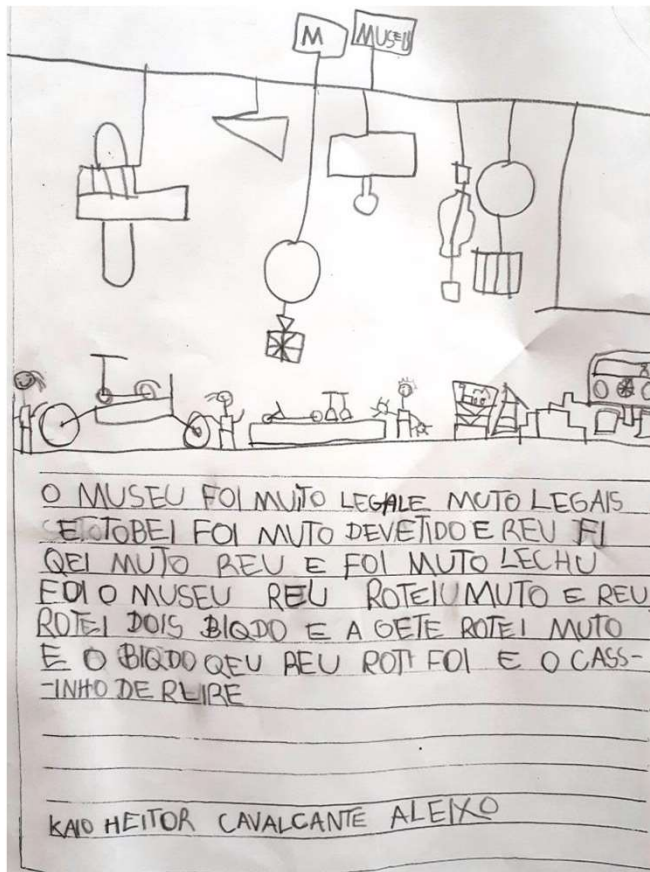 M
MUSEU
O MUSEU FOI MUITO LEGALE MUTO LEGAIS
FOI MUTO DEVETIDO E REU FI
QEI MUTO REU E FOI MUTO LECHU
FOI O MUSEU REU ROTEIU MUTO E REU
ROTEI DOIS BIQDO E A GETE ROTEI MUTO
E O BIQDO QEU REU ROTI FOI E O CASS-
-INHO DE RLIRE
KAIO HEITOR CAVALCANTE ALEIXO